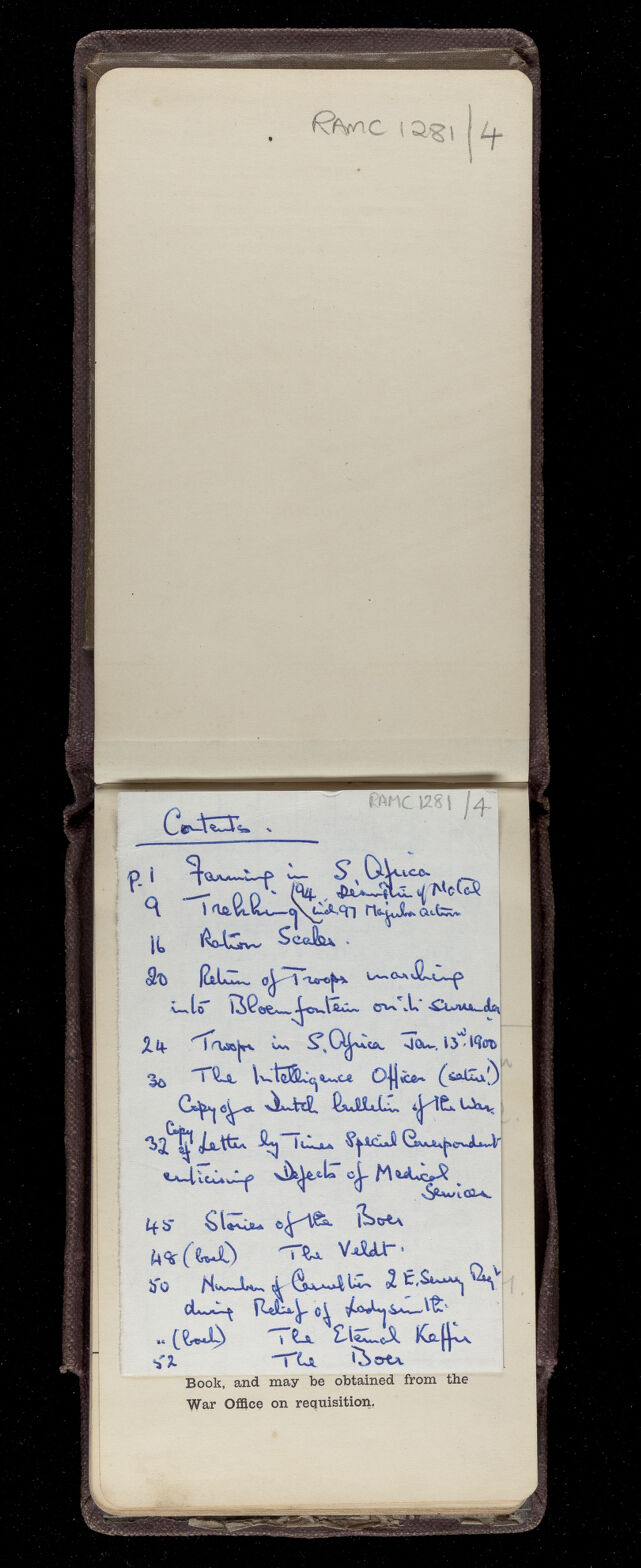 RAMC 1281/4
RAMC 1281/4
Contents.
p. 1 Farming in S. Africa
9 Trekking (p4 Description of Natal
incl. 97 Majuba action
16 Ration Scales.
20 Return of Troops marching
into Bloemfontein on its surrender
24 Troops in S. Africa Jan. 13th. 1900
30 The Intelligence Officer (satire!)
Copy of a Dutch bulletin of the War.
32 Copy of Letter by Times Special Correspondent
criticising Defects of Medical
Services
45 Stories of the Boer
48 (back) The Veldt.
50 Number of Casualties 2 E. Surrey Regt
during Relief of Ladysmith.
" (back) The Eternal Kaffir
52 The Boer
Book, and may be obtained from the
War Office on requisition.